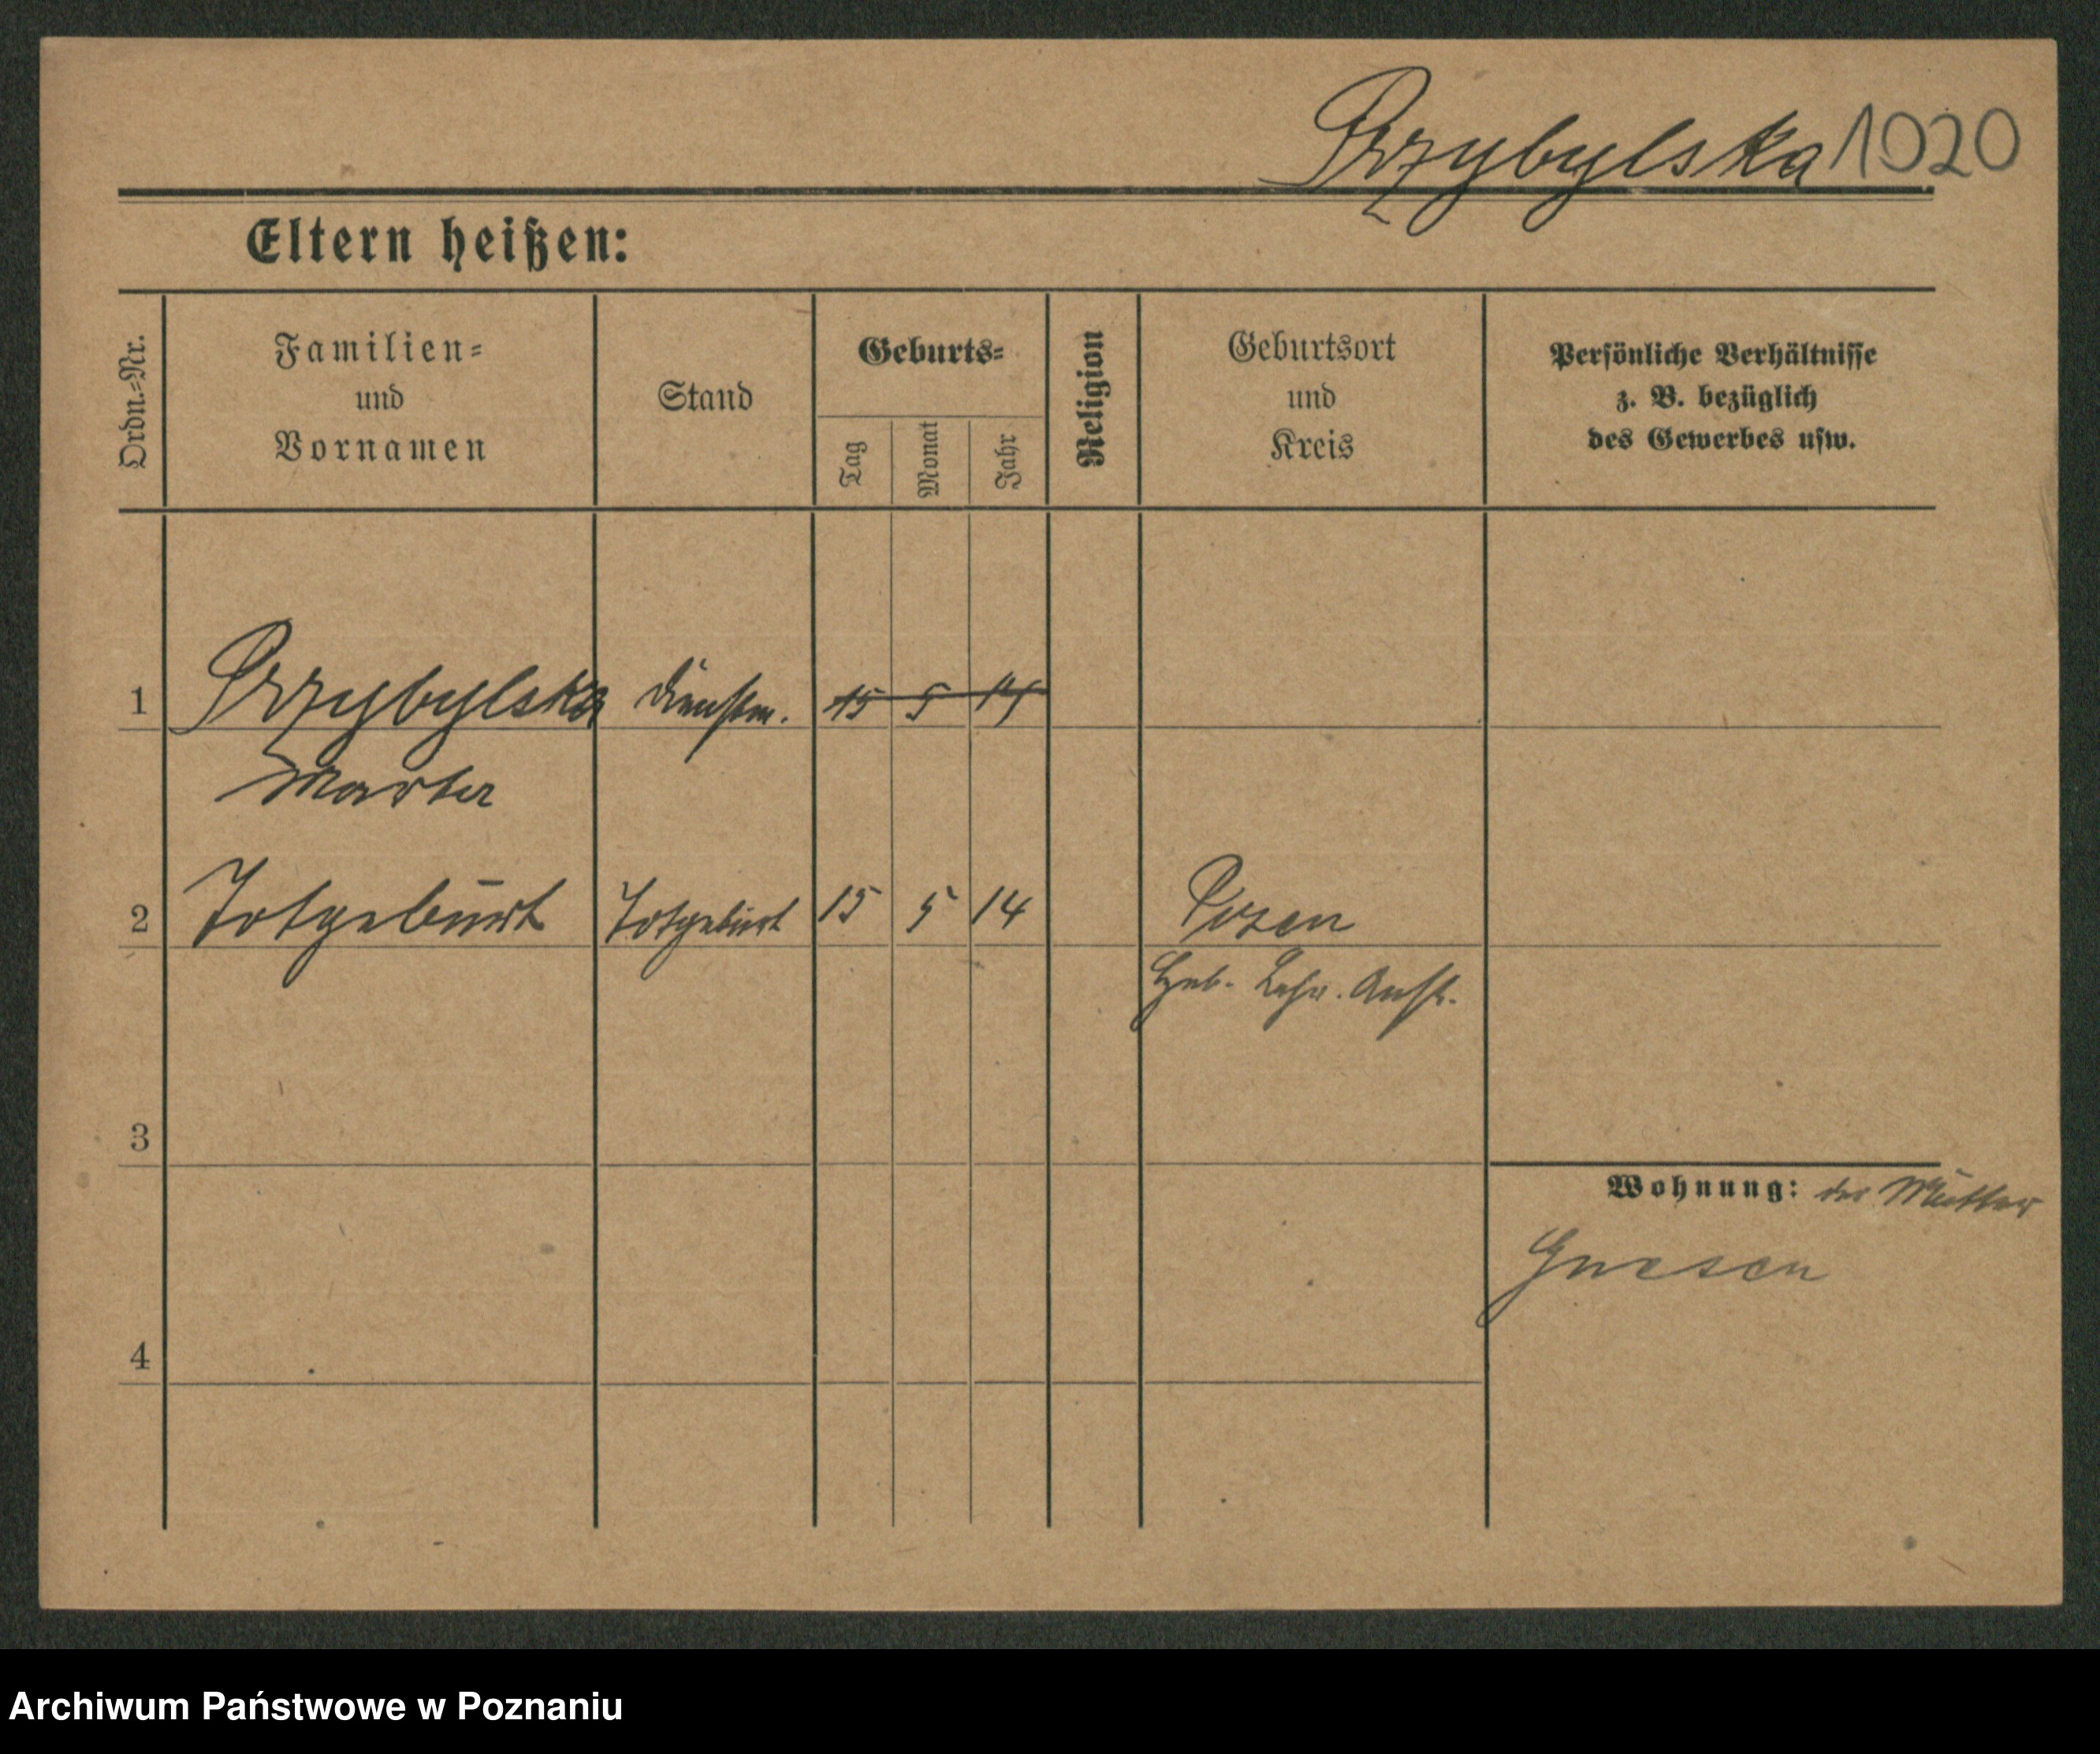 Przybylska 1020
Eltern heißen:
Ordn.-Nr.
Familien- und Vornamen
Stand
Geburts-
Tag
Monat
Jahr
Religion
Geburtsort und Kreis
Persönliche Verhältnisse
z. B. bezüglich
des Gewerbes usw.
1 Przybylska Dienstm. 15 5 14
2 Totgeburt Totgeburt 15 5 14 Posen
Heb. Lehr. Anst.
3
Wohnung: der Mutter
Gnesen
4
Archiwum Państwowe w Poznaniu